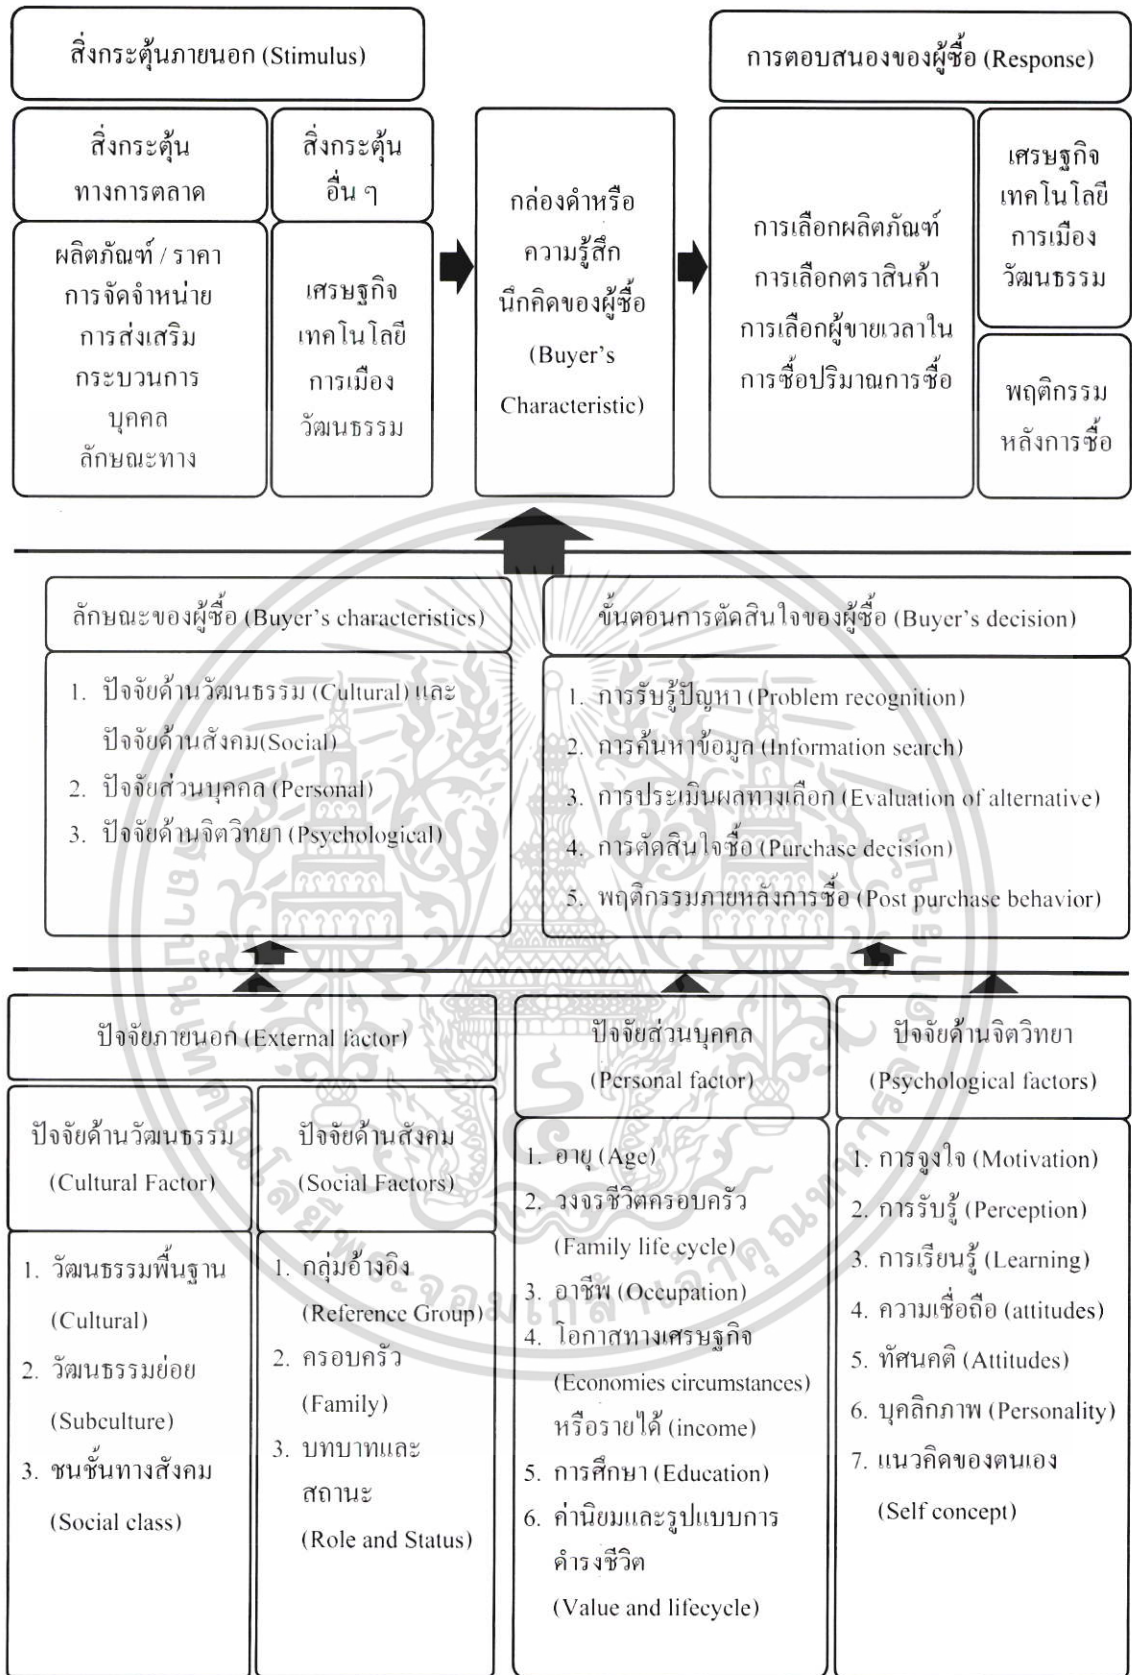 สิ่งกระตุ้นภายนอก (Stimulus)
สิ่งกระตุ้น
ทางการตลาด
สิ่งกระตุ้น
อื่น ๆ
ผลิตภัณฑ์ / ราคา
การจัดจำหน่าย
การส่งเสริม
กระบวนการ
บุคคล
ลักษณะทาง
เศรษฐกิจ
เทคโนโลยี
การเมือง
วัฒนธรรม
กล่องดำหรือ
ความรู้สึก
นึกคิดของผู้ซื้อ
(Buyer's
Characteristic)
การตอบสนองของผู้ซื้อ (Response)
การเลือกผลิตภัณฑ์
การเลือกตราสินค้า
การเลือกผู้ขายเวลาใน
การซื้อปริมาณการซื้อ
เศรษฐกิจ
เทคโนโลยี
การเมือง
วัฒนธรรม
พฤติกรรม
หลังการซื้อ
ลักษณะของผู้ซื้อ (Buyer's characteristics)
1. ปัจจัยด้านวัฒนธรรม (Cultural) และ
ปัจจัยด้านสังคม(Social)
2. ปัจจัยส่วนบุคคล (Personal)
3. ปัจจัยด้านจิตวิทยา (Psychological)
ขั้นตอนการตัดสินใจของผู้ซื้อ (Buyer's decision)
1. การรับรู้ปัญหา (Problem recognition)
2. การค้นหาข้อมูล (Information search)
3. การประเมินผลทางเลือก (Evaluation of alternative)
4. การตัดสินใจซื้อ (Purchase decision)
5. พฤติกรรมภายหลังการซื้อ (Post purchase behavior)
ปัจจัยภายนอก (External factor)
ปัจจัยด้านวัฒนธรรม
(Cultural Factor)
1. วัฒนธรรมพื้นฐาน
(Cultural)
2. วัฒนธรรมย่อย
(Subculture)
3. ชนชั้นทางสังคม
(Social class)
ปัจจัยด้านสังคม
(Social Factors)
1. กลุ่มอ้างอิง
(Reference Group)
2. ครอบครัว
(Family)
3. บทบาทและ
สถานะ
(Role and Status)
ปัจจัยส่วนบุคคล
(Personal factor)
1. อายุ (Age)
2. วงจรชีวิตครอบครัว
(Family life cycle)
3. อาชีพ (Occupation)
4. โอกาสทางเศรษฐกิจ
(Economies circumstances)
หรือรายได้ (income)
5. การศึกษา (Education)
6. ค่านิยมและรูปแบบการ
ดำรงชีวิต
(Value and lifecycle)
ปัจจัยด้านจิตวิทยา
(Psychological factors)
1. การจูงใจ (Motivation)
2. การรับรู้ (Perception)
3. การเรียนรู้ (Learning)
4. ความเชื่อถือ (attitudes)
5. ทัศนคติ (Attitudes)
6. บุคลิกภาพ (Personality)
7. แนวคิดของตนเอง
(Self concept)
สถาบันเทคโนโลยีพระจอมเกล้าเจ้าคุณทหารลาดกระบัง